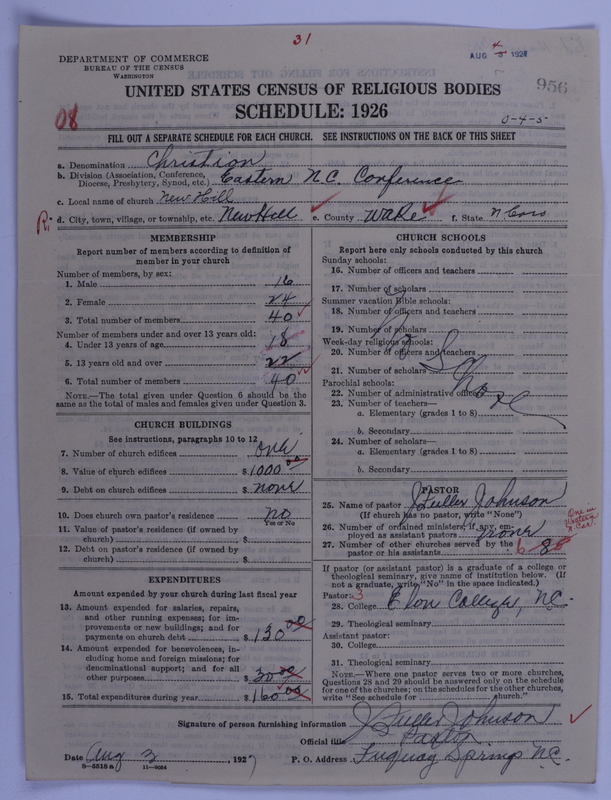 31
AUG 4 1927
956
DEPARTMENT OF COMMERCE
BUREAU OF THE CENSUS
WASHINGTON
UNITED STATES CENSUS OF RELIGIOUS BODIES
SCHEDULE: 1926
08
0-4-5
FILL OUT A SEPARATE SCHEDULE FOR EACH CHURCH. SEE INSTRUCTIONS ON THE BACK OF THIS SHEET
a. Denomination Christian
b. Division (Association, Conference, Diocese, Presbytery, Synod, etc.) Eastern N.C. Conference
c. Local name of church New Hill
R: d. City, town, village, or township, etc. New Hill e. County Wake f. State N Caro
MEMBERSHIP
Report number of members according to definition of member in your church
Number of members, by sex:
1. Male 16
2. Female 24
3. Total number of members 40
Number of members under and over 13 years old:
4. Under 13 years of age 18
5. 13 years old and over 22
6. Total number of members 40
NOTE.—The total given under Question 6 should be the same as the total of males and females given under Question 3.
CHURCH BUILDINGS
See instructions, paragraphs 10 to 12
7. Number of church edifices one
8. Value of church edifices $1000 00
9. Debt on church edifices $ none
10. Does church own pastor's residence? no
Yes or No
11. Value of pastor's residence (if owned by church) $
12. Debt on pastor's residence (if owned by church) $
EXPENDITURES
Amount expended by your church during last fiscal year
13. Amount expended for salaries, repairs, and other running expenses; for improvements or new buildings; and for payments on church debt $ 130 00
14. Amount expended for benevolences, including home and foreign missions; for denominational support; and for all other purposes $ 30 00
15. Total expenditures during year $ 160 00
CHURCH SCHOOLS
Report here only schools conducted by this church
Sunday schools:
16. Number of officers and teachers
17. Number of scholars
Summer vacation Bible schools:
18. Number of officers and teachers
19. Number of scholars
Week-day religious schools:
20. Number of officers and teachers
21. Number of scholars
Parochial schools:
22. Number of administrative officers
23. Number of teachers—
a. Elementary (grades 1 to 8)
b. Secondary
24. Number of scholars—
a. Elementary (grades 1 to 8)
b. Secondary
PASTOR
25. Name of pastor J Fuller Johnson
(If church has no pastor, write "None")
26. Number of ordained ministers, if any, employed as assistant pastors none
27. Number of other churches served by the pastor or his assistants 6 8
One in Western N. Car.
If pastor (or assistant pastor) is a graduate of a college or theological seminary, give name of institution below. (If not a graduate, write "No" in the space indicated.)
Pastor: 3
28. College Elon College, N.C.
29. Theological seminary
Assistant pastor:
30. College
31. Theological seminary
NOTE.—Where one pastor serves two or more churches, Questions 28 and 29 should be answered only on the schedule for one of the churches; on the schedules for the other churches, write "See schedule for church."
Signature of person furnishing information J Fuller Johnson
Official title Pastor
Date Aug 3, 1927 P. O. Address Fuquay Springs N.C.
8-5518 a 11-9084